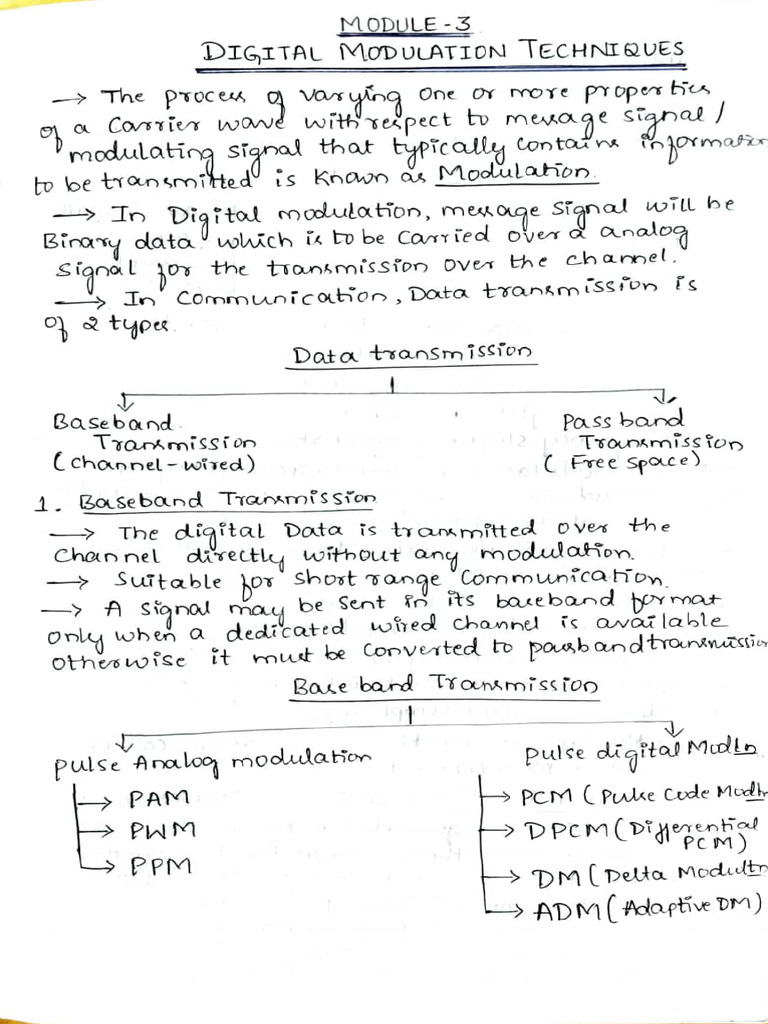 MODULE-3
DIGITAL MODULATION TECHNIQUES
→ The process of varying one or more properties
of a carrier wave with respect to message signal /
modulating signal that typically contains information
to be transmitted is known as Modulation.
→ In Digital modulation, message signal will be
Binary data which is to be carried over a analog
signal for the transmission over the channel.
→ In communication, Data transmission is
of 2 types.
Data transmission
Baseband Transmission (channel-wired)
Pass band Transmission (Free space)
1. Baseband Transmission
→ The digital Data is transmitted over the
channel directly without any modulation.
→ Suitable for short range communication.
→ A signal may be sent in its baseband format
only when a dedicated wired channel is available
otherwise it must be converted to passband transmission
Base band Transmission
Pulse Analog modulation
→ PAM
→ PWM
→ PPM
Pulse digital Modln
→ PCM (Pulse Code Modln
→ DPCM (Differential
PCM)
→ DM (Delta Modultn
→ ADM (Adaptive DM)